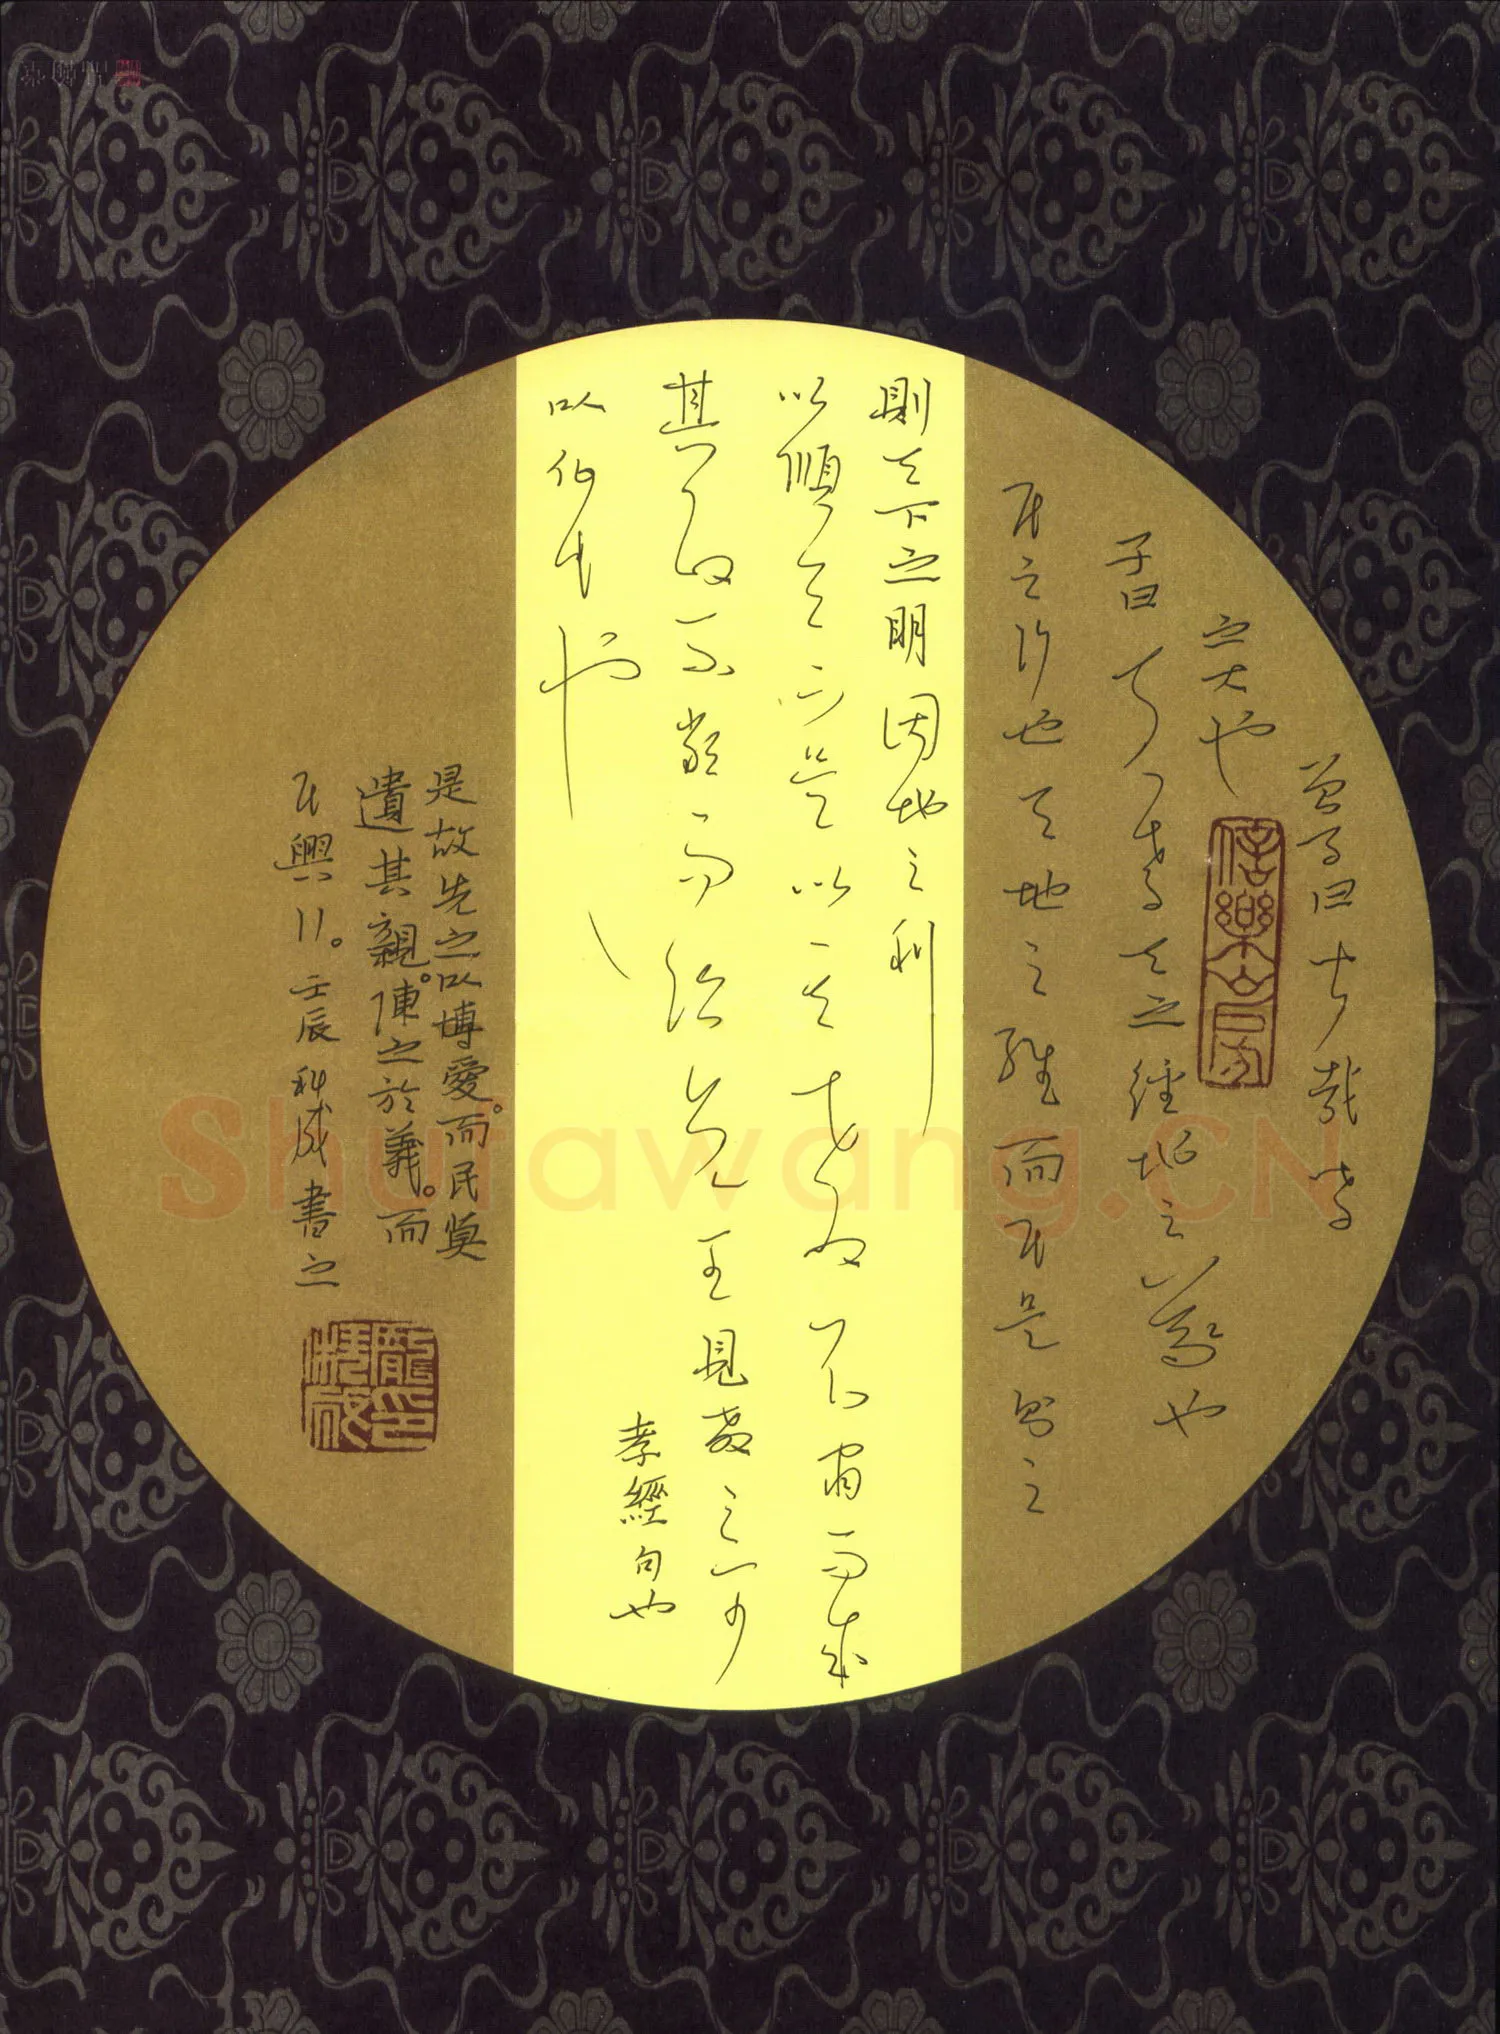 曾子曰甚哉孝
之大也
子曰夫孝天之经地之義也
民之行也天地之经而民是則之
則天下之明因地之利
以順天下是以其教不肅而成
其政不嚴而治先王見教之可
以化民也
孝經句也
是故先之以博愛。而民莫
遺其親。陳之於義。而
民興行。壬辰科威書之
Shufawang.CN